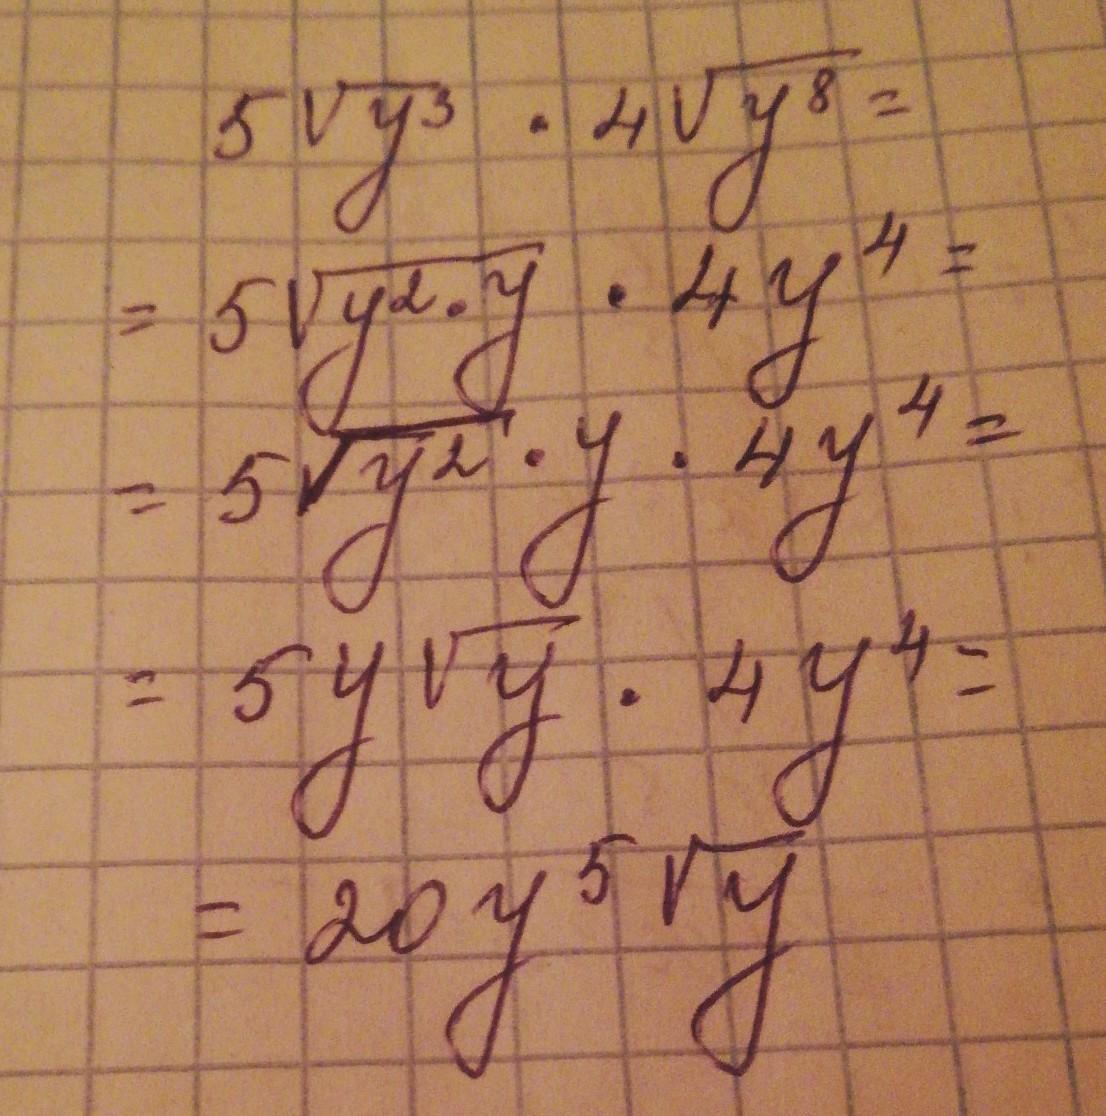 5√y³ · 4√y⁸ =
= 5√y² · y · 4y⁴ =
= 5√y² · y · 4y⁴ =
= 5y√y · 4y⁴ =
= 20y⁵√y